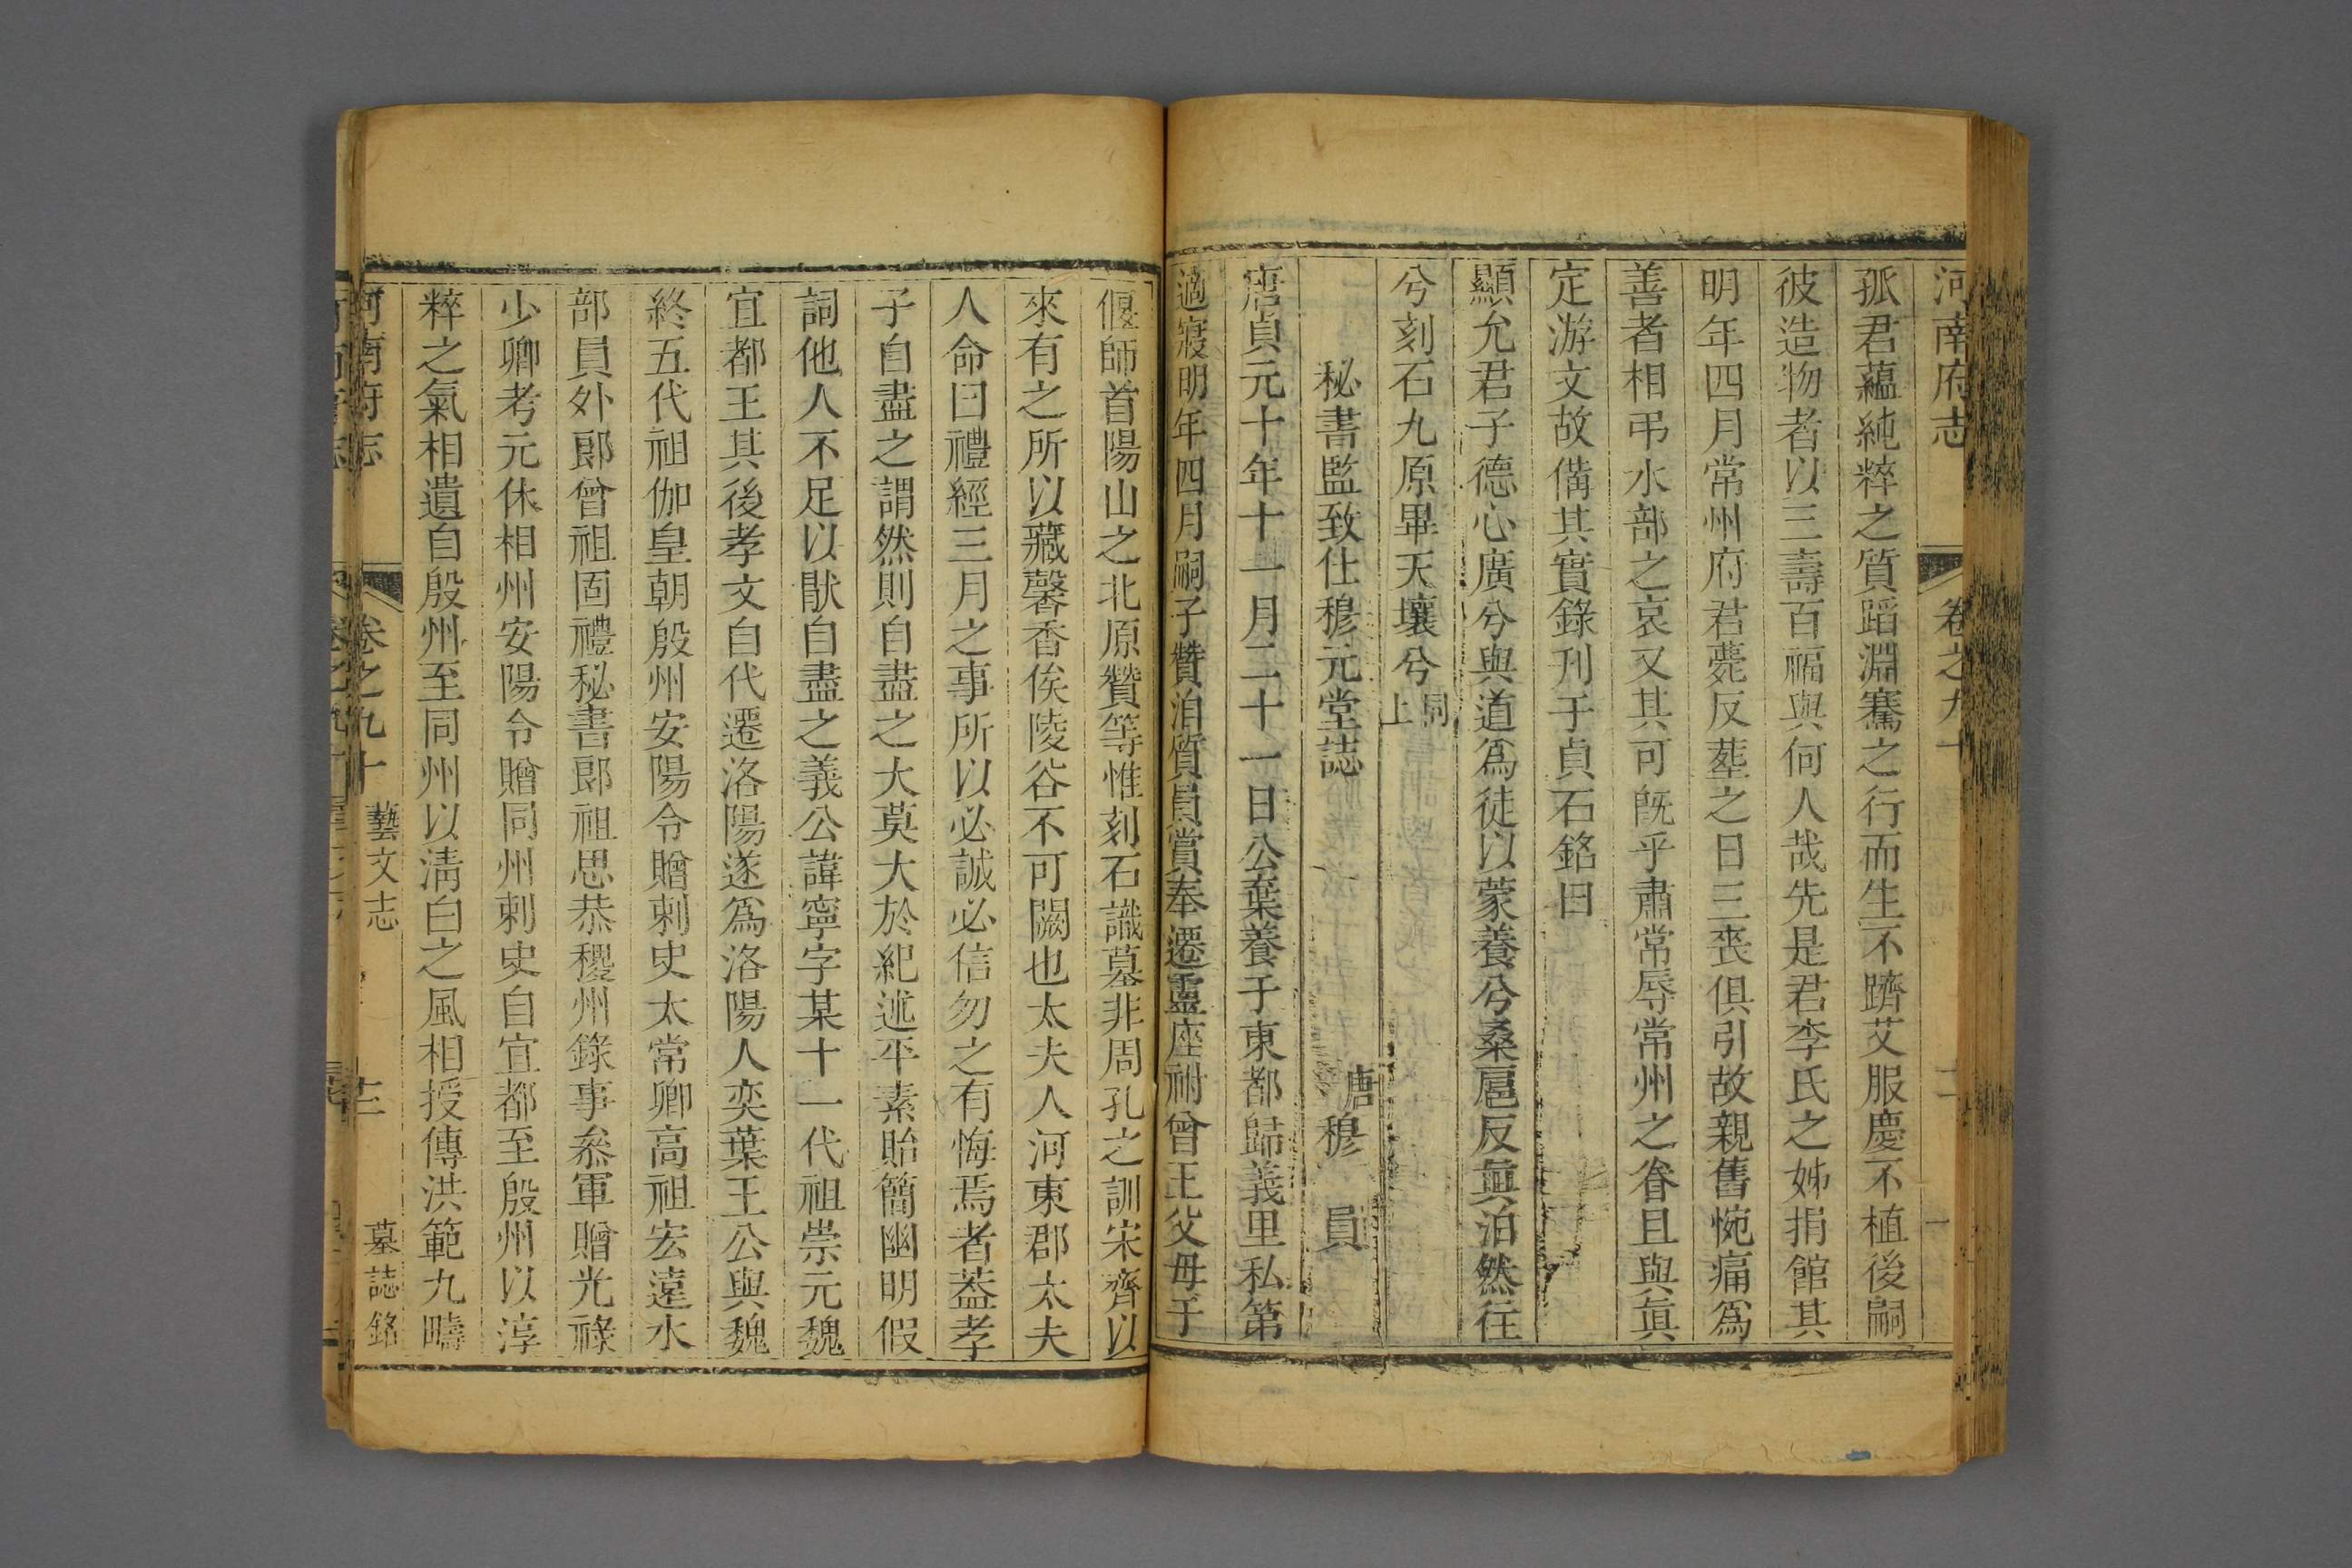 河南府志
卷之九十
孤君蘊純粹之質蹈淵騫之行而生不躋艾服慶不植後嗣
彼造物者以三壽百福與何人哉先是君李氏之姊捐館其
明年四月常州府君薨反塟之日三喪俱引故親舊惋痛爲
善者相弔水部之哀又其可旣乎肅常辱常州之眷且與眞
定游文故備其實錄刋于貞石銘曰
顯允君子德心廣兮與道爲徒以蒙養兮桑扈反眞泊然往
兮刻石九原畢天壤兮 同上
秘書監致仕穆元堂誌 唐穆 員
唐貞元十年十一月二十一日公棄養于東都歸義里私第
適寢明年四月嗣子贊洎質員賞奉遷靈座祔曾王父母于
偃師首陽山之北原贊等惟刻石識墓非周孔之訓宋齊以
來有之所以藏馨香俟陵谷不可闕也太夫人河東郡太夫
人命曰禮經三月之事所以必誠必信勿之有悔焉者葢孝
子自盡之謂然則自盡之大莫大於紀述平素貽簡幽明假
詞他人不足以猒自盡之義公諱寧字某十一代祖崇元魏
宜都王其後孝文自代遷洛陽遂爲洛陽人奕葉王公與魏
終五代祖伽皇朝殷州安陽令贈刺史太常卿高祖宏遠水
部員外郎曾祖固禮秘書郎祖思恭稷州錄事叅軍贈光祿
少卿考元休相州安陽令贈同州刺史自宜都至殷州以淳
粹之氣相遺自殷州至同州以淸白之風相授傳洪範九疇
河南府志 卷之九十 藝文志 十二 墓誌銘